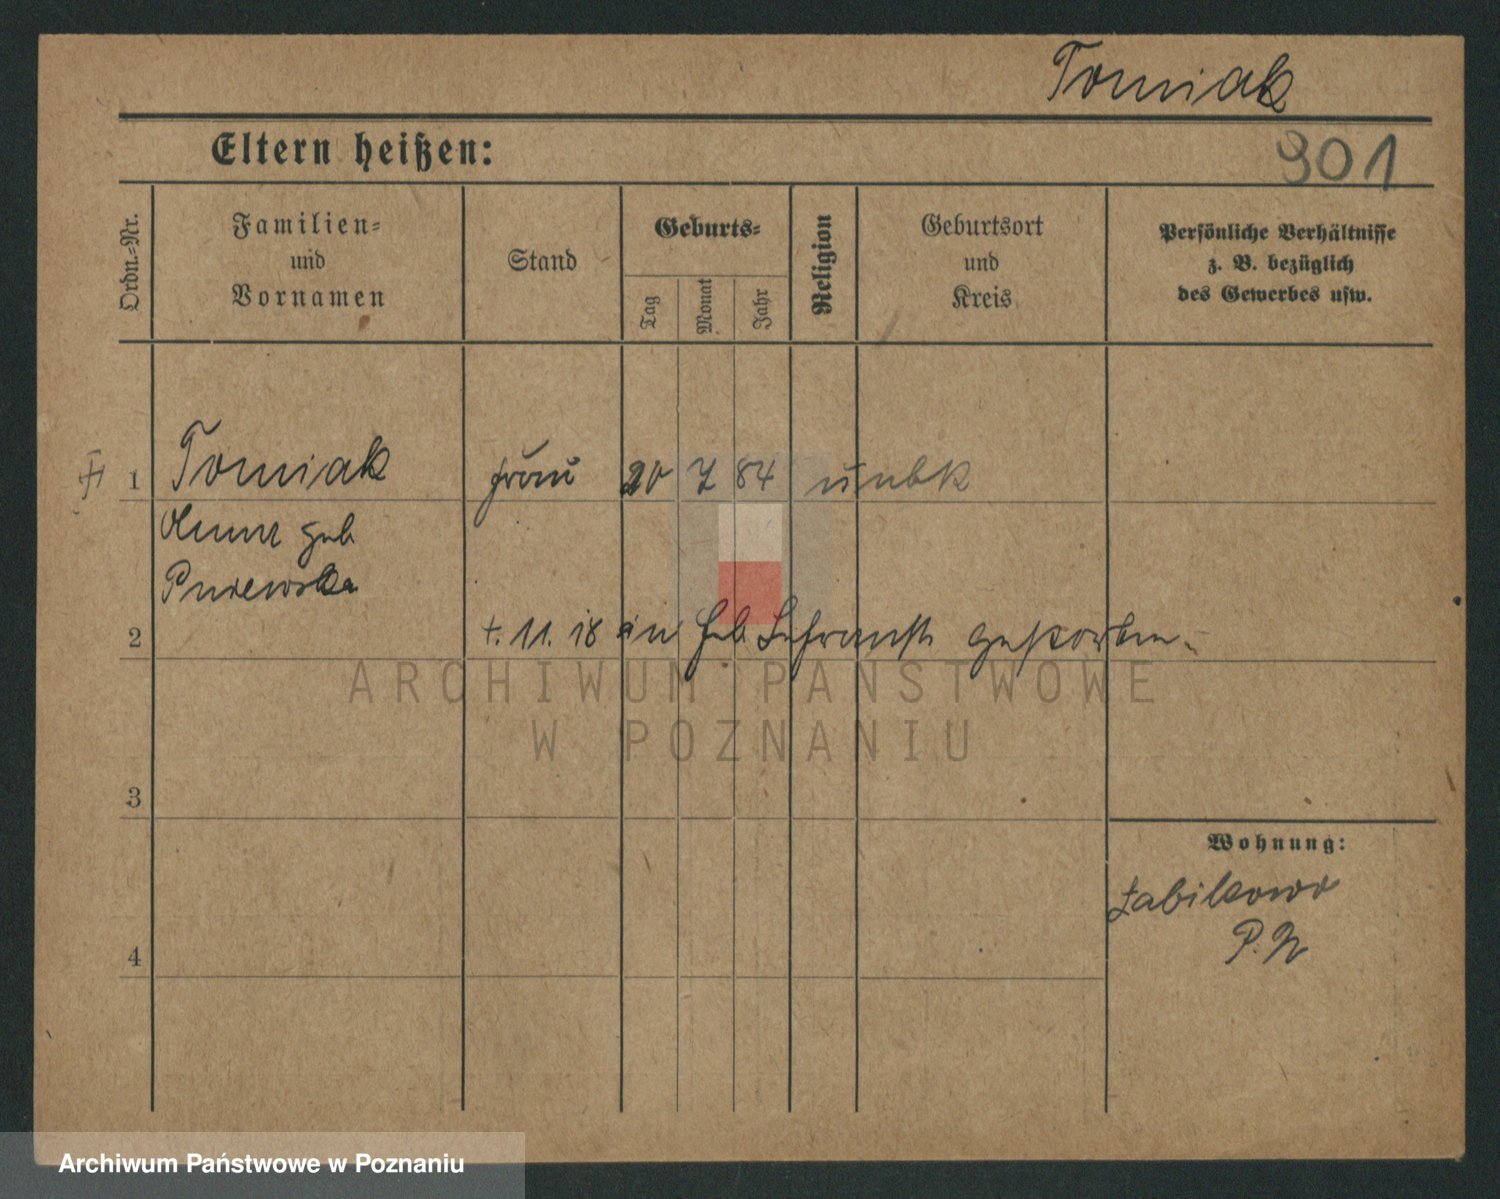 Tomiak
Eltern heißen:
901
Ordn.-Nr.
Familien-
und
Vornamen
Stand
Geburts-
Tag
Monat
Jahr
Religion
Geburtsort
und
Kreis
Persönliche Verhältnisse
z. B. bezüglich
des Gewerbes usw.
1 Tomiak Frau 20 7 84 unbk
geb
2 †. 11. 18 in gestorben
ARCHIWUM PAŃSTWOWE
W POZNANIU
3
Wohnung:
Żabikowo
4
Archiwum Państwowe w Poznaniu